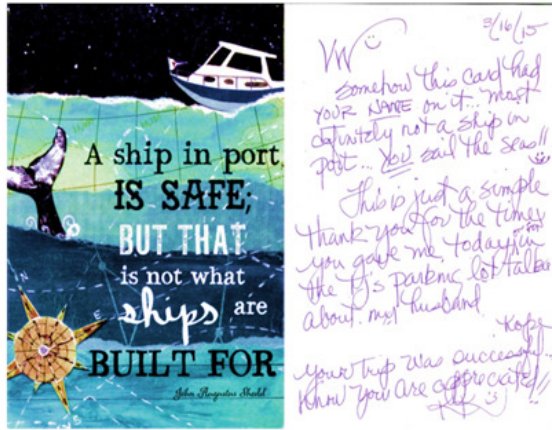 A ship in port
IS SAFE;
BUT THAT
is not what
ships are
BUILT FOR
John Augustus Shedd
3/16/15
Somehow this card had
YOUR NAME on it... most
definitely not a ship in
port... YOU sail the seas!!
This is just a simple
thank you for the time
you gave me today in
the TJ's parking lot talking
about my husband.
your trip was
Know you are appreciated!!